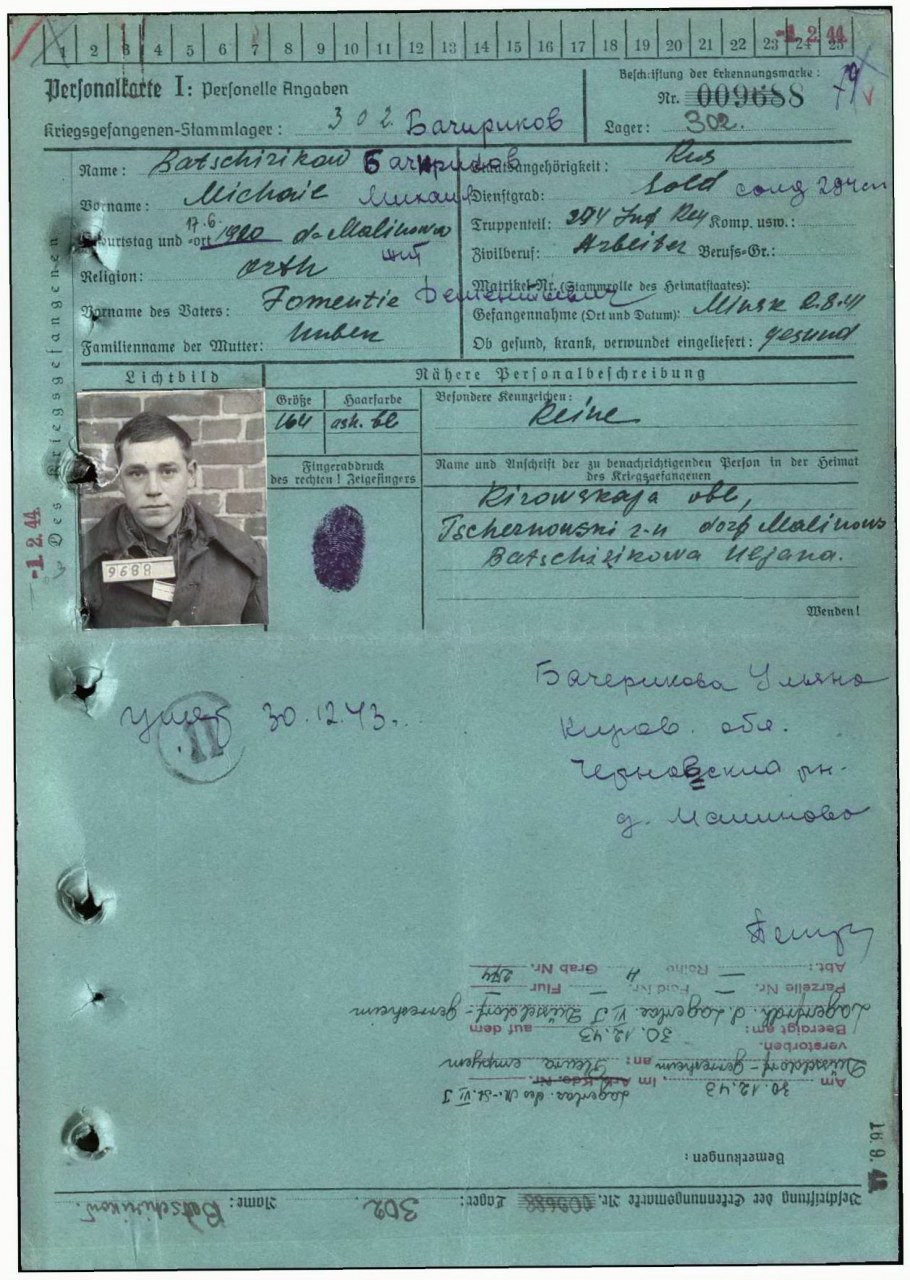 1 2 3 4 5 6 7 8 9 10 11 12 13 14 15 16 17 18 19 20 21 22 23 24 25
-1. 2. 44
Personalkarte I: Personelle Angaben
Beschriftung der Erkennungsmarke:
Nr. 009688
79
Kriegsgefangenen-Stammlager: 302 Бачириков
Lager: 302.
Name: Batschirikow Бачириков
Staatsangehörigkeit: Rus
Vorname: Michail Михаил
Dienstgrad: Sold солд
Geburtstag und -ort 17.6. 1920 d. Malinowo
Truppenteil: 274 Inf. Reg Komp. usw.:
Religion: orth
Zivilberuf: Arbeiter Berufs-Gr.:
Matrikel-Nr. (Stammrolle des Heimatstaates):
Vorname des Vaters: Fomentie
Gefangennahme (Ort und Datum): Minsk 2.8.41
Familienname der Mutter:
Ob gesund, krank, verwundet eingeliefert: gesund
Des Kriegsgefangenen
-1. 2. 44.
Lichtbild
Nähere Personalbeschreibung
Größe
Haarfarbe
Besondere Kennzeichen:
164
ask. bl
Keine
Fingerabdruck
des rechten! Zeigefingers
Name und Anschrift der zu benachrichtigenden Person in der Heimat
des Kriegsgefangenen
Kirowskaja obl,
Tschernowski r-n dorf Malinowo
Batschirikowa Uljana.
9688
Wenden!
Бачерикова Ульяна
Киров. обл.
Черновский рн.
д. Малиново
30.12.43.
II
Beschriftung der Erkennungsmarke Nr. 009688 Lager: 302 Name: Batschirikow.
Bemerkungen:
16. 9. 42
Am 30.12.43, im Arb. Kdo. Nr. Lagerlaz. des M.-St. VI J
Düsseldorf-Gerresheim an: Pleura empyem
verstorben.
Beerdigt am: 30.12.43 auf dem
Lagerfrdh. d. Lagerlaz. VI J Düsseldorf-Gerresheim
Parzelle Nr. — Feld Nr. — Flur —
Abt.: — Reihe 4 Grab Nr. 274